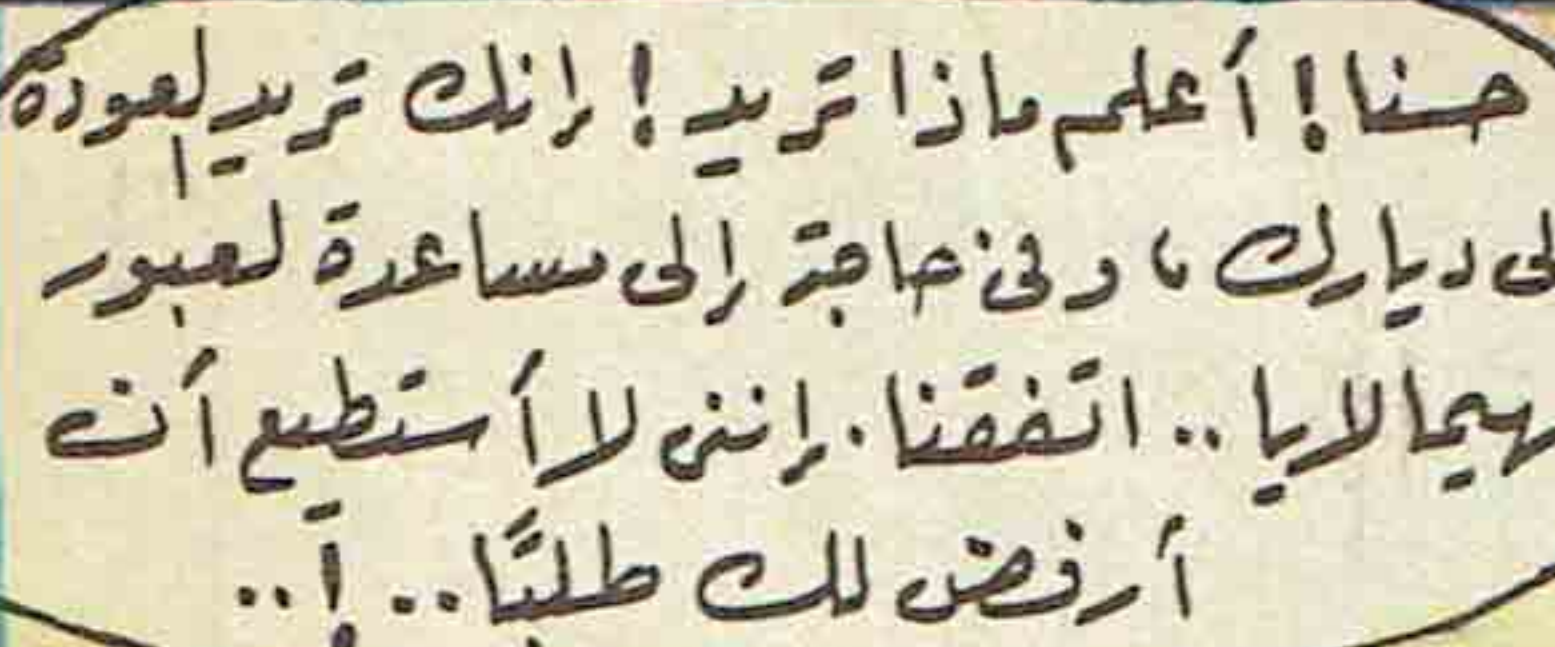 حسنا! أعلم ماذا تريد! إنك تريد العودة
لى ديارك، وفى حاجة إلى مساعدة لعبور
هيمالايا.. اتفقنا. إننى لا أستطيع أن
أرفض لك طلبًا..!..